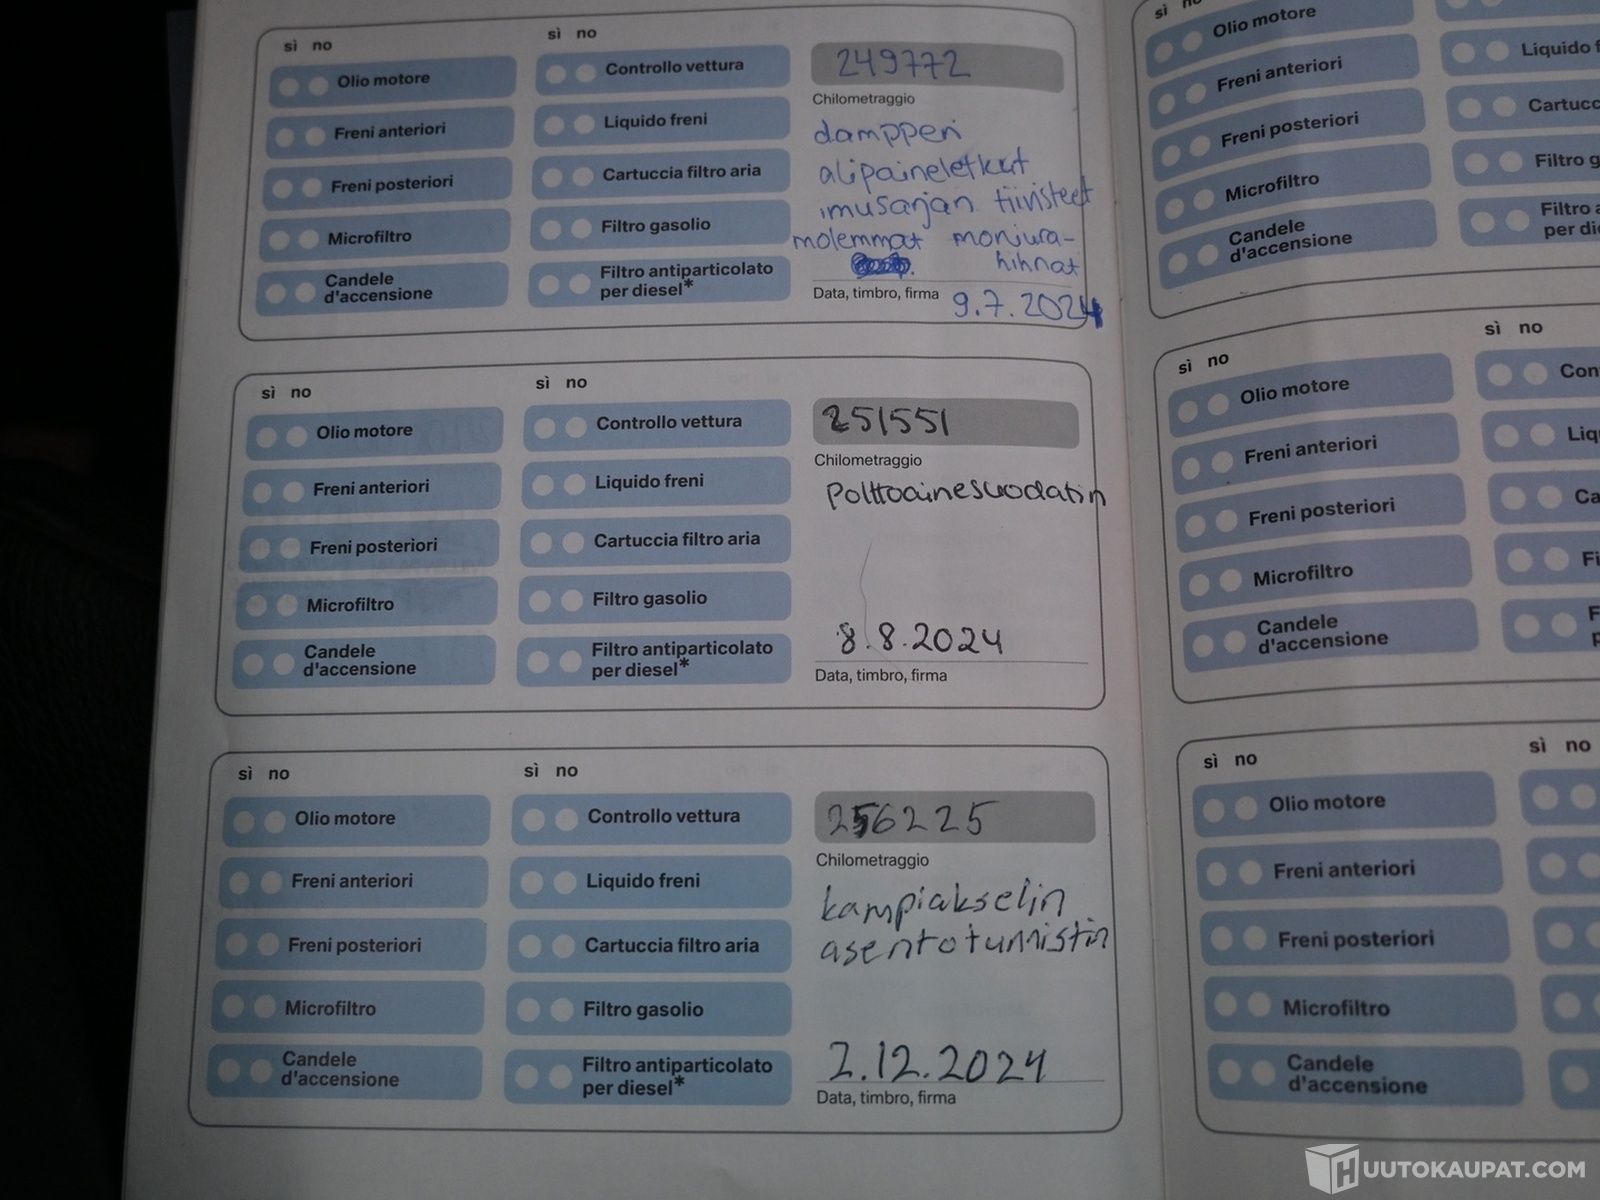 sì no
sì no
Olio motore
Controllo vettura
249772
Chilometraggio
Freni anteriori
Liquido freni
dampperi
alipaineletkut
imusarjan tiivisteet
molemmat moniura-
hihnat
Freni posteriori
Cartuccia filtro aria
Microfiltro
Filtro gasolio
Candele
d'accensione
Filtro antiparticolato
per diesel*
Data, timbro, firma
9.7.2024
sì no
sì no
Olio motore
Controllo vettura
251551
Chilometraggio
Freni anteriori
Liquido freni
Polttoainesuodatin
Freni posteriori
Cartuccia filtro aria
Microfiltro
Filtro gasolio
8.8.2024
Candele
d'accensione
Filtro antiparticolato
per diesel*
Data, timbro, firma
sì no
sì no
Olio motore
Controllo vettura
256225
Chilometraggio
Freni anteriori
Liquido freni
kampiakselin
asentotunnistin
Freni posteriori
Cartuccia filtro aria
Microfiltro
Filtro gasolio
2.12.2024
Candele
d'accensione
Filtro antiparticolato
per diesel*
Data, timbro, firma
sì no
Olio motore
Freni anteriori
Liquido
Freni posteriori
Microfiltro
Filtro
Candele
d'accensione
Filtro
per
sì no
sì no
Olio motore
Freni anteriori
Freni posteriori
Microfiltro
Candele
d'accensione
sì no
sì no
Olio motore
Freni anteriori
Freni posteriori
Microfiltro
Candele
d'accensione
HUUTOKAUPAT.COM